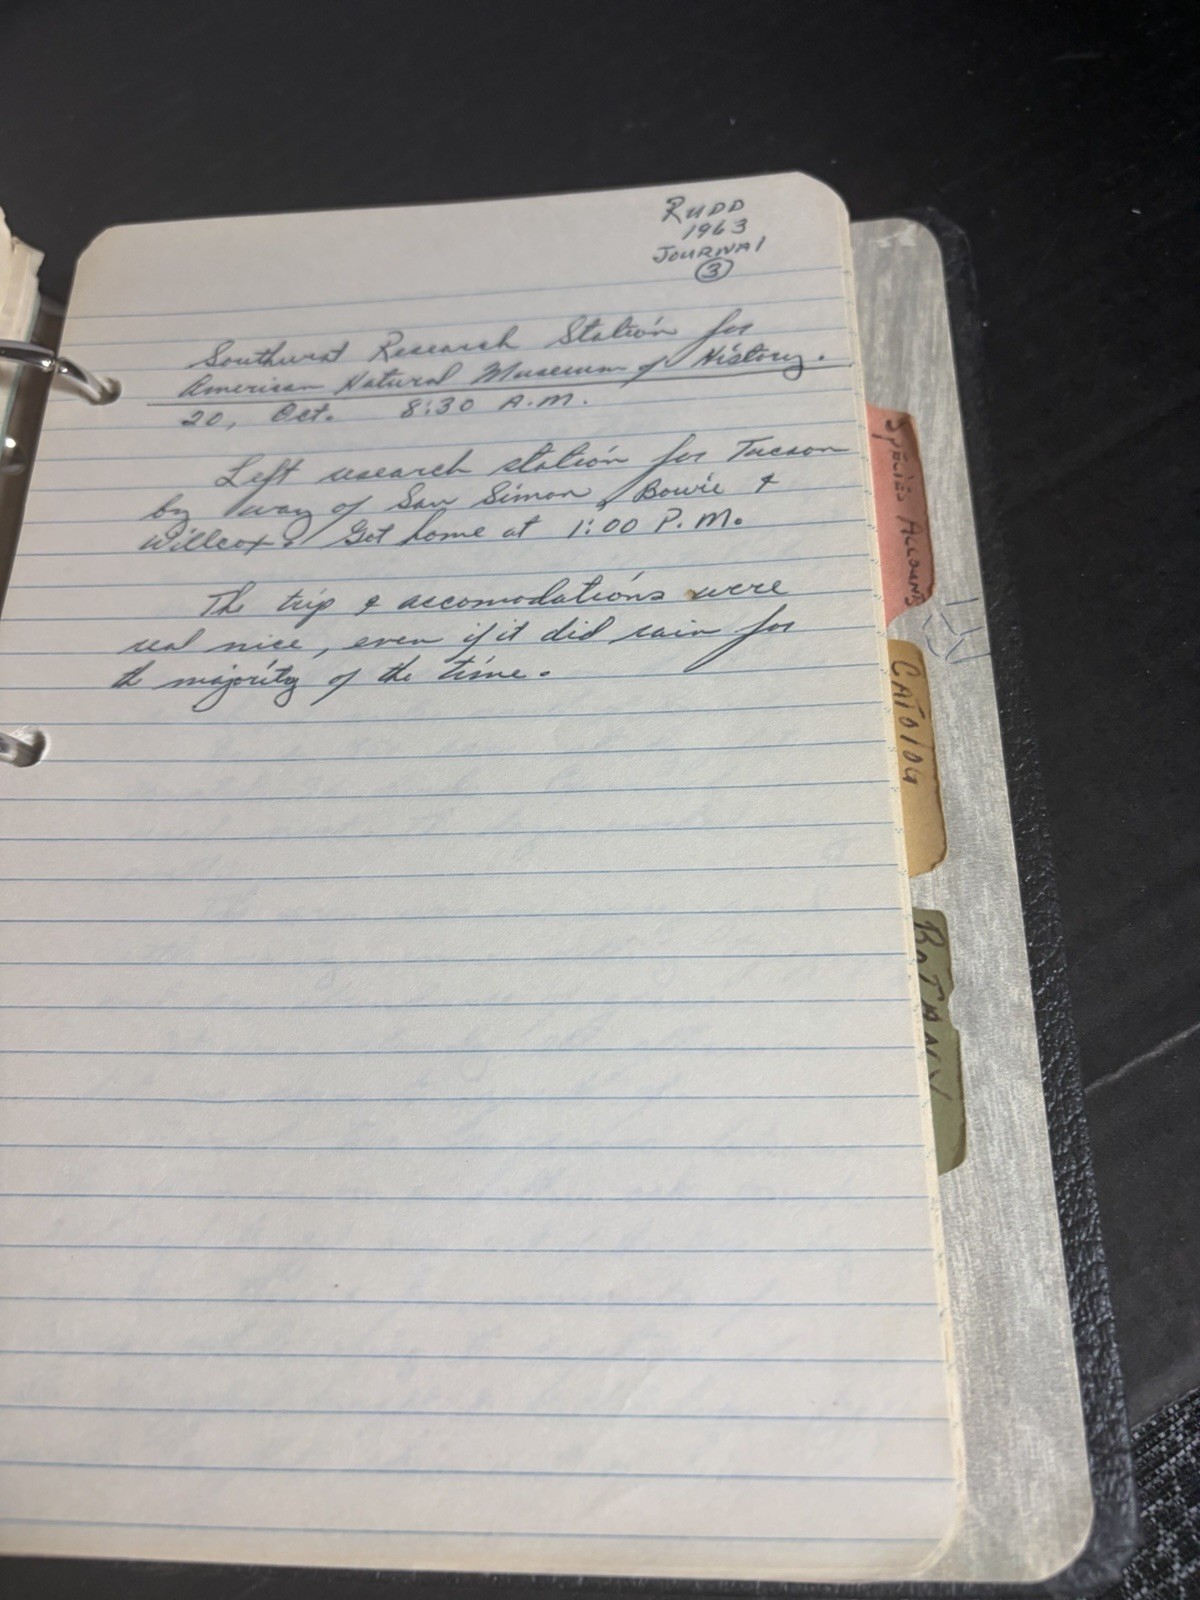 RUDD
1963
JOURNAL
3
Southwest Research Station for
American Natural Museum of History.
20, Oct. 8:30 A.M.
Left research station for Tucson
by way of San Simon, Bowie &
Willcox. Got home at 1:00 P.M.
The trip & accomodations were
real nice, even if it did rain for
the majority of the time.
Species Accounts
CATalog
BOTANY